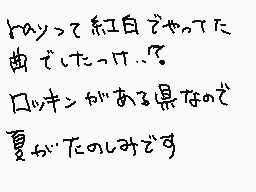 rayって紅白でやってた
曲でしたっけ..?
ロッキンがある県なので
夏がたのしみです